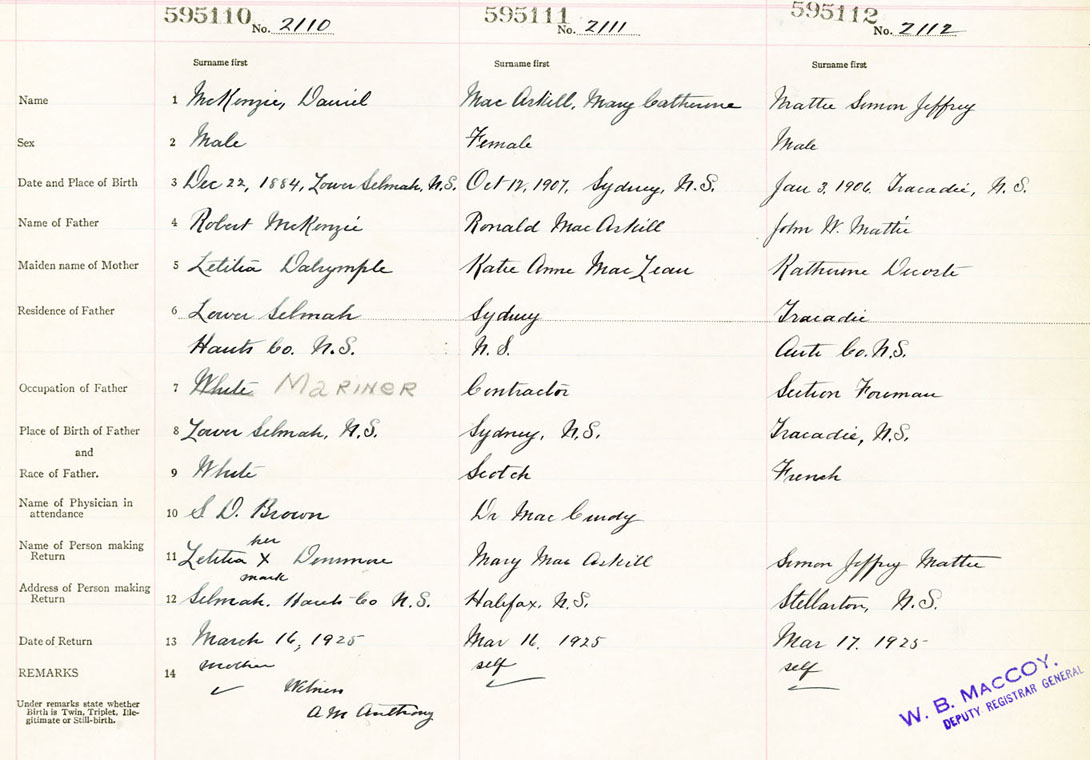 595110 No. 2110 595111 No. 2111 595112 No. 2112
Surname first Surname first Surname first
Name 1 McKenzie, Daniel Mac Askill, Mary Catherine Mattie Simon Jeffrey
Sex 2 Male Female Male
Date and Place of Birth 3 Dec 22, 1884, Lower Selmah, N.S. Oct 12, 1907, Sydney, N.S. Jan 3, 1906. Tracadie, N.S.
Name of Father 4 Robert McKenzie Ronald Mac Askill John W. Mattie
Maiden name of Mother 5 Letitia Dalrymple Katie Anne Mac Lean Katherine Decoste
Residence of Father 6 Lower Selmah Sydney Tracadie
Hants Co. N.S. N.S. Anti Co. N.S.
Occupation of Father 7 White MARINER Contractor Section Foreman
Place of Birth of Father 8 Lower Selmah, N.S. Sydney, N.S. Tracadie, N.S.
and
Race of Father. 9 White Scotch French
Name of Physician in
attendance 10 S D. Brown Dr Mac Curdy
Name of Person making her
Return 11 Letitia X Densmore Mary Mac Askill Simon Jeffrey Mattie
mark
Address of Person making
Return 12 Selmah. Hants Co N.S. Halifax, N.S. Stellarton, N.S.
Date of Return 13 March 16, 1925 Mar 16. 1925 Mar 17. 1925
REMARKS 14 mother self self
Witness
Under remarks state whether
Birth is Twin, Triplet, Ille-
gitimate or Still-birth.
A M Anthony
W. B. MACCOY.
DEPUTY REGISTRAR GENERAL